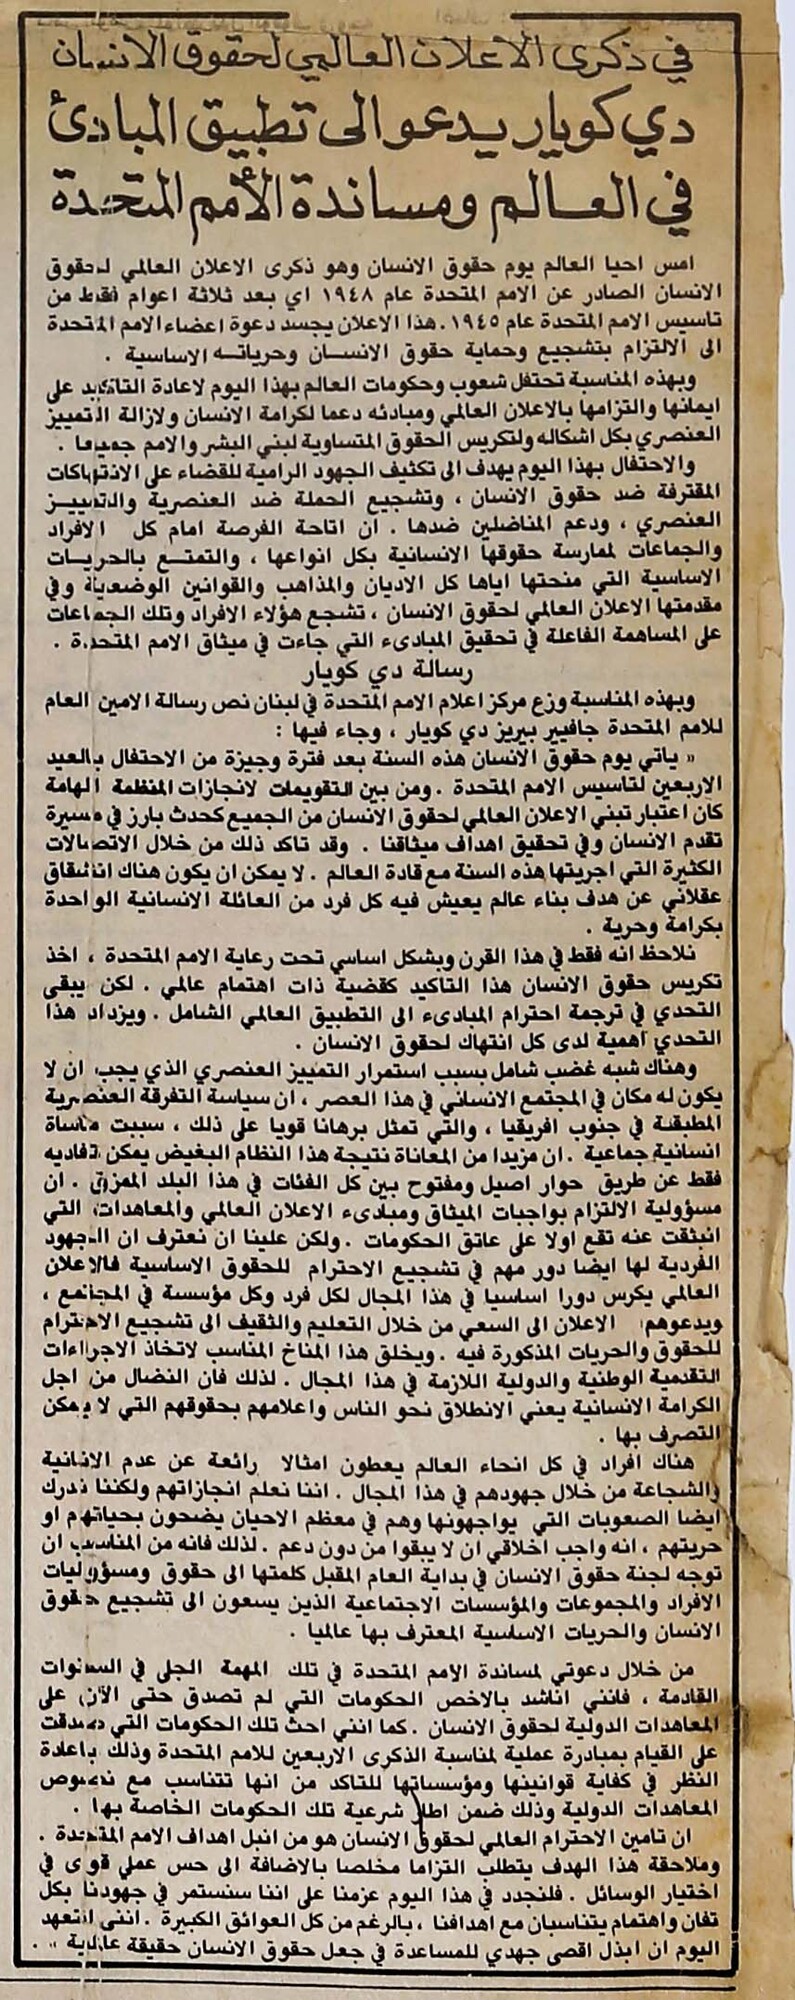 في ذكرى الاعلان العالمي لحقوق الانسان
دي كويار يدعو الى تطبيق المبادئ
في العالم ومساندة الأمم المتحدة
امس احيا العالم يوم حقوق الانسان وهو ذكرى الاعلان العالمي لحقوق
الانسان الصادر عن الامم المتحدة عام ١٩٤٨ اي بعد ثلاثة اعوام فقط من
تاسيس الامم المتحدة عام ١٩٤٥. هذا الاعلان يجسد دعوة اعضاء الامم المتحدة
الى الالتزام بتشجيع وحماية حقوق الانسان وحرياته الاساسية .
وبهذه المناسبة تحتفل شعوب وحكومات العالم بهذا اليوم لاعادة التاكيد على
ايمانها والتزامها بالاعلان العالمي ومبادئه دعما لكرامة الانسان ولازالة التمييز
العنصري بكل اشكاله ولتكريس الحقوق المتساوية لبني البشر والامم جميعا .
والاحتفال بهذا اليوم يهدف الى تكثيف الجهود الرامية للقضاء على الانتهاكات
المقترفة ضد حقوق الانسان ، وتشجيع الحملة ضد العنصرية والتمييز
العنصري ، ودعم المناضلين ضدها . ان اتاحة الفرصة امام كل الافراد
والجماعات لممارسة حقوقها الانسانية بكل انواعها ، والتمتع بالحريات
الاساسية التي منحتها اياها كل الاديان والمذاهب والقوانين الوضعية وفي
مقدمتها الاعلان العالمي لحقوق الانسان ، تشجع هؤلاء الافراد وتلك الجماعات
على المساهمة الفاعلة في تحقيق المبادىء التي جاءت في ميثاق الامم المتحدة .
رسالة دي كويار
وبهذه المناسبة وزع مركز اعلام الامم المتحدة في لبنان نص رسالة الامين العام
للامم المتحدة جافيير بيريز دي كويار ، وجاء فيها :
« ياتي يوم حقوق الانسان هذه السنة بعد فترة وجيزة من الاحتفال بالعيد
الاربعين لتاسيس الامم المتحدة . ومن بين التقويمات لانجازات المنظمة الهامة
كان اعتبار تبني الاعلان العالمي لحقوق الانسان من الجميع كحدث بارز في مسيرة
تقدم الانسان وفي تحقيق اهداف ميثاقنا . وقد تاكد ذلك من خلال الاتصالات
الكثيرة التي اجريتها هذه السنة مع قادة العالم . لا يمكن ان يكون هناك انشقاق
عقلاني عن هدف بناء عالم يعيش فيه كل فرد من العائلة الانسانية الواحدة
بكرامة وحرية .
نلاحظ انه فقط في هذا القرن وبشكل اساسي تحت رعاية الامم المتحدة ، اخذ
تكريس حقوق الانسان هذا التاكيد كقضية ذات اهتمام عالمي . لكن يبقى
التحدي في ترجمة احترام المبادىء الى التطبيق العالمي الشامل . ويزداد هذا
التحدي اهمية لدى كل انتهاك لحقوق الانسان .
وهناك شبه غضب شامل بسبب استمرار التمييز العنصري الذي يجب ان لا
يكون له مكان في المجتمع الانساني في هذا العصر ، ان سياسة التفرقة العنصرية
المطبقة في جنوب افريقيا ، والتي تمثل برهانا قويا على ذلك ، سببت ماساة
انسانية جماعية . ان مزيدا من المعاناة نتيجة هذا النظام البغيض يمكن تفاديه
فقط عن طريق حوار اصيل ومفتوح بين كل الفئات في هذا البلد الممزق . ان
مسؤولية الالتزام بواجبات الميثاق ومبادىء الاعلان العالمي والمعاهدات التي
انبثقت عنه تقع اولا على عاتق الحكومات . ولكن علينا ان نعترف ان الجهود
الفردية لها ايضا دور مهم في تشجيع الاحترام للحقوق الاساسية فالاعلان
العالمي يكرس دورا اساسيا في هذا المجال لكل فرد وكل مؤسسة في المجتمع ،
ويدعوهم الاعلان الى السعي من خلال التعليم والثقيف الى تشجيع الاحترام
للحقوق والحريات المذكورة فيه . ويخلق هذا المناخ المناسب لاتخاذ الاجراءات
التقدمية الوطنية والدولية اللازمة في هذا المجال . لذلك فان النضال من اجل
الكرامة الانسانية يعني الانطلاق نحو الناس واعلامهم بحقوقهم التي لا يمكن
التصرف بها .
هناك افراد في كل انحاء العالم يعطون امثالا رائعة عن عدم الانانية
والشجاعة من خلال جهودهم في هذا المجال . اننا نعلم انجازاتهم ولكننا ندرك
ايضا الصعوبات التي يواجهونها وهم في معظم الاحيان يضحون بحياتهم او
حريتهم ، انه واجب اخلاقي ان لا يبقوا من دون دعم . لذلك فانه من المناسب ان
توجه لجنة حقوق الانسان في بداية العام المقبل كلمتها الى حقوق ومسؤوليات
الافراد والمجموعات والمؤسسات الاجتماعية الذين يسعون الى تشجيع حقوق
الانسان والحريات الاساسية المعترف بها عالميا .
من خلال دعوتي لمساندة الامم المتحدة في تلك المهمة الجلى في السنوات
القادمة ، فانني اناشد بالاخص الحكومات التي لم تصدق حتى الآن على
المعاهدات الدولية لحقوق الانسان . كما انني احث تلك الحكومات التي صدقت
على القيام بمبادرة عملية لمناسبة الذكرى الاربعين للامم المتحدة وذلك باعادة
النظر في كفاية قوانينها ومؤسساتها للتاكد من انها تتناسب مع نصوص
المعاهدات الدولية وذلك ضمن اطار شرعية تلك الحكومات الخاصة بها .
ان تامين الاحترام العالمي لحقوق الانسان هو من انبل اهداف الامم المتحدة .
وملاحقة هذا الهدف يتطلب التزاما مخلصا بالاضافة الى حس عملي قوي في
اختيار الوسائل . فلنجدد في هذا اليوم عزمنا على اننا سنستمر في جهودنا بكل
تفان واهتمام يتناسبان مع اهدافنا ، بالرغم من كل العوائق الكبيرة . انني اتعهد
اليوم ان ابذل اقصى جهدي للمساعدة في جعل حقوق الانسان حقيقة عالمية » .